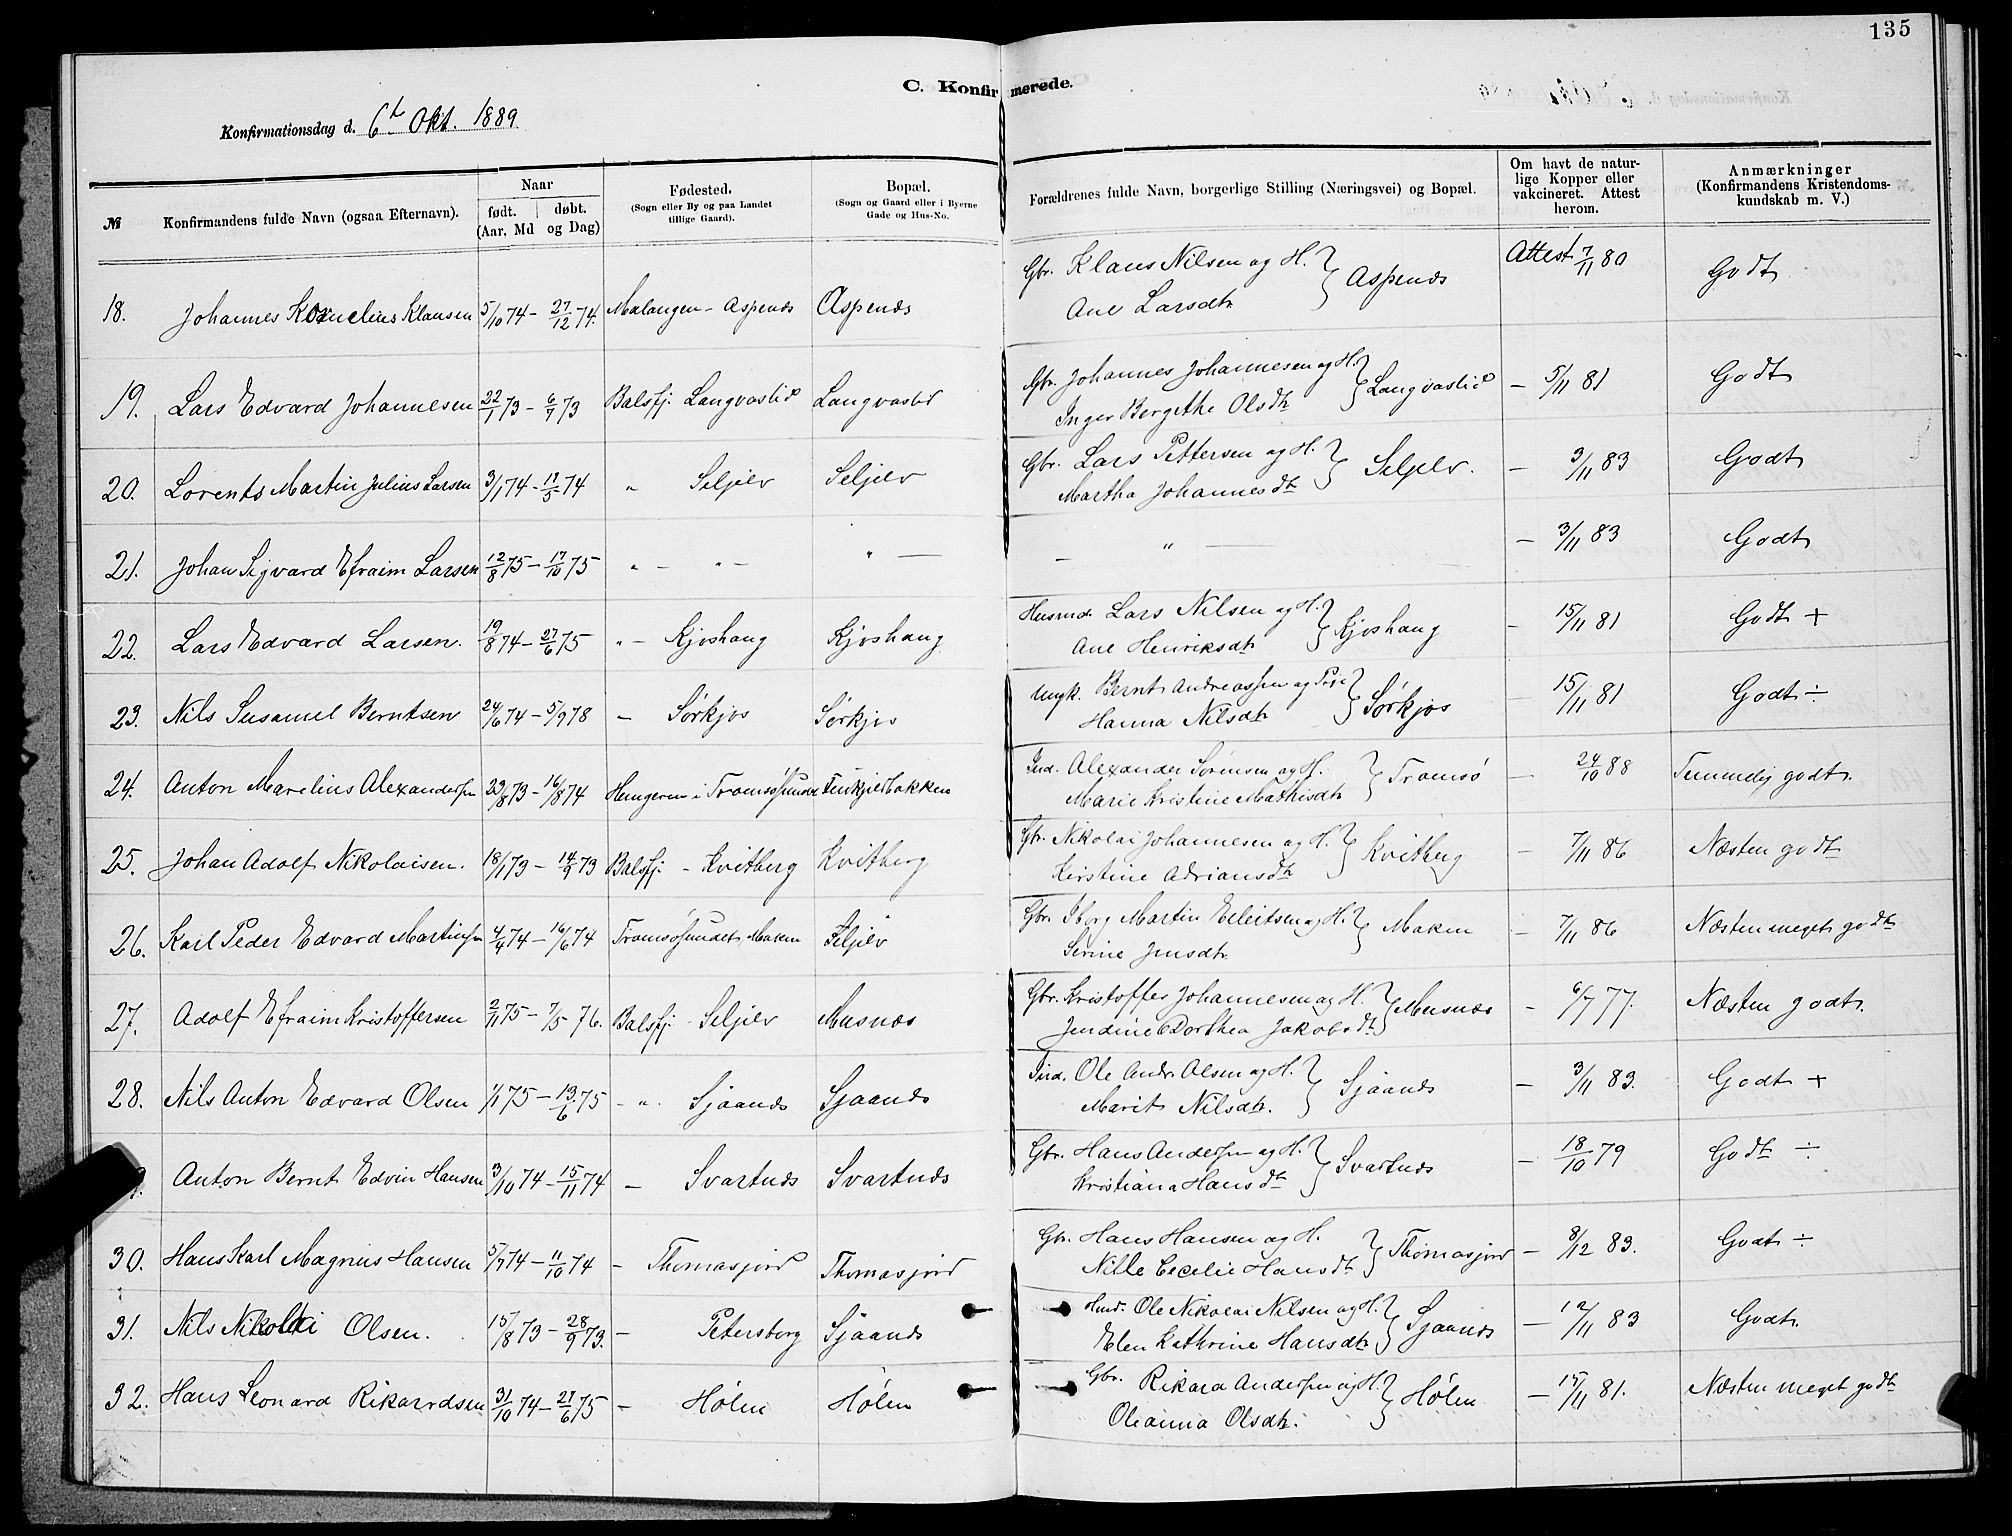 135
C. Konfirmerede.
Konfirmationsdag d. 6t Okt. 1889
№ Konfirmandens fulde Navn (ogsaa Efternavn). Naar født. døbt. (Aar. Md og Dag) Fødested. (Sogn eller By og paa Landet tillige Gaard). Bopæl. (Sogn og Gaard eller i Byerne Gade og Hus-No. Forældrenes fulde Navn, borgerlige Stilling (Næringsvei) og Bopæl. Om havt de naturlige Kopper eller vakcineret. Attest herom. Anmærkninger (Konfirmandens Kristendomskundskab m. V.)
18. Johannes Kornelius Klausen 5/10 74 - 27/12 74. Malangen - Aspenæs Aspenæs Gbr. Klaus Nilsen og H. Ane Larsdtr } Aspenæs Attest 7/11 80 Godt
19. Lars Edvard Johannesen 22/1 73 - 6/7 73 Balsfj. Langvaslid Langvaslid Gbr. Johannes Johannesen og H. Inger Bergithe Olsdtr } Langvaslid - 5/11 81 Godt
20. Lorents Martin Julius Larsen 3/1 74 - 17/5 74 " Seljelv Seljelv Gbr. Lars Pettersen og H. Martha Johannesdtr } Seljelv. - 3/11 83 Godt
21. Johan Sigvard Efraim Larsen 12/8 75 - 17/10 75 " - " - " — - " — - 3/11 83 Godt
22. Lars Edvard Larsen. 19/8 74 - 27/6 75 " - Kjoshang Kjoshang Husmd. Lars Nilsen og H. Ane Henriksdtr } Kjoshang - 15/11 81 Godt +
23. Nils Berntsen 24/6 74 - 5/9 78 - Sørkjos Sørkjos Ungk. Bernt Andreassen og Pige Hanna Nilsdtr } Sørkjos - 15/11 81 Godt ÷
24. Anton Marelius Alexandersen 23/8 73 - 16/8 74 Hungeren i Tromsøsundet Ind. Alexander Sørensen og H. Marie Kristine Mathisdtr } Tromsø - 24/10 88 Temmelig godt.
25. Johan Adolf Nikolaisen. 18/1 73 - 14/9 73 Balsfj. - Kvitberg Kvitberg Gbr. Nikolai Johannesen og H. Kirstine Adriansdtr } Kvitberg - 7/11 86 Næsten godt
26. Karl Peder Edvard Martinsen 4/4 74 - 16/6 74 Tromsøsundet, Maken Seljelv Gbr. Martin og H. Serine Jensdtr. } Maken - 7/11 86 Næsten meget godt
27. Adolf Efraim Kristoffersen 2/11 75 - 7/5 76. Balsfj. Seljelv Masnæs Gbr. Kristoffer Johannesen og H. Jendine Dorthea Jakobsdtr } Masnæs - 6/7 77. Næsten godt.
28. Nils Anton Edvard Olsen 1/1 75 - 13/6 75 - ". Sjaanæs Sjaanæs Ind. Ole Andr. Olsen og H. Marit Nilsdtr. } Sjaanæs - 3/11 83. Godt +
Anton Bernt Edvin Hansen 3/10 74 - 15/11 74 - Svartnæs Svartnæs Gbr. Hans Andersen og H. Kristiana Hansdtr } Svartnæs - 18/10 79 Godt ÷
30. Hans Karl Magnus Hansen 5/7 74 - 11/10 74 - Thomasjord Thomasjord Gbr. Hans Hansen og H. Nille Cecelie Hansdtr } Thomasjord - 8/12 83. Godt ÷
31. Nils Nikolai Olsen. 15/8 73 - 28/9 73. - Petersborg Sjaanæs Husmd. Ole Nikolai Nilsen og H. Elen Kathrine Hansdtr } Sjaanæs - 12/11 83 Godt.
32. Hans Leonard Rikardsen 31/10 74 - 27/6 75 - Hølen Hølen Gbr. Rikard Andersen og H. Oleanna Olsdtr. } Hølen - 15/11 81. Næsten meget godt